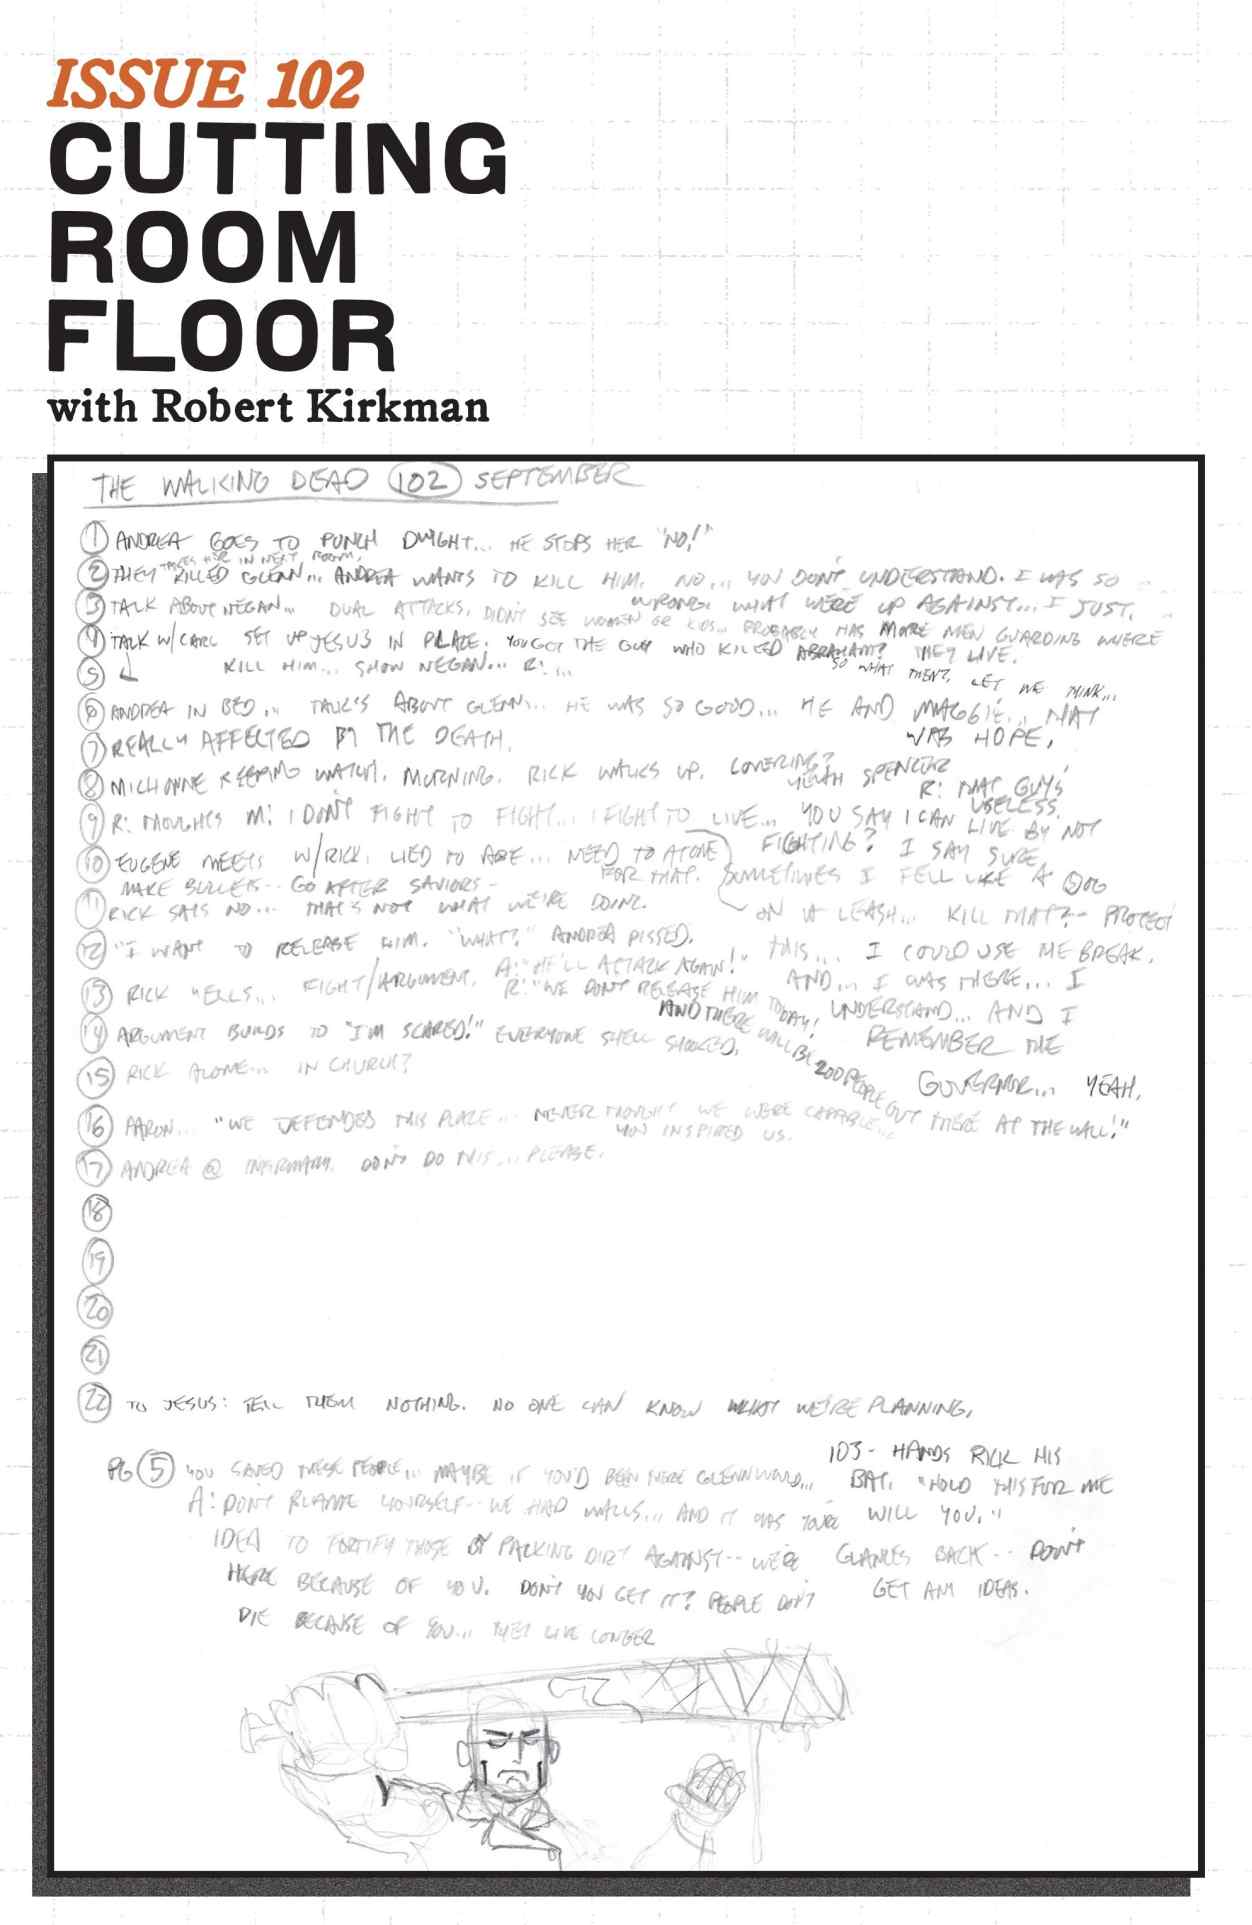 ISSUE 102
CUTTING
ROOM
FLOOR
with Robert Kirkman
THE WALKING DEAD 102 SEPTEMBER
1 ANDREA GOES TO PUNCH DWIGHT... HE STOPS HER "NO!"
TAKES HER IN NEXT ROOM,
2 THEY KILLED GLENN... ANDREA WANTS TO KILL HIM. NO... YOU DON'T UNDERSTAND. I WAS SO
WRONG. WHAT WE'RE UP AGAINST... I JUST.
3 TALK ABOUT NEGAN... DUAL ATTACKS. DIDN'T SEE WOMEN OR KIDS... PROBABLY HAS MORE MEN GUARDING WHERE
THEY LIVE.
4 TALK W/CARL SET UP JESUS IN PLACE. YOU GOT THE GUY WHO KILLED ABRAHAM?
SO WHAT THEN? LET ME THINK...
5 KILL HIM... SHOW NEGAN... R: ...
6 ANDREA IN BED... TALKS ABOUT GLENN... HE WAS SO GOOD... HE AND MAGGIE... THAT
WAS HOPE.
7 REALLY AFFECTED BY THE DEATH.
8 MICHONNE KEEPING WATCH. MORNING. RICK WALKS UP. COVERING?
YEAH SPENCER
R: THAT GUY'S
USELESS.
9 R: THOUGHTS M: I DON'T FIGHT TO FIGHT... I FIGHT TO LIVE... YOU SAY I CAN LIVE BY NOT
FIGHTING? I SAY SURE.
SOMETIMES I FELL LIKE A DOG
ON A LEASH... KILL THAT?-- PROTECT
THIS... I COULD USE THE BREAK.
AND... I WAS THERE... I
UNDERSTAND... AND I
REMEMBER THE
GOVERNOR... YEAH.
10 EUGENE MEETS W/RICK. LIED TO ABE... NEED TO ATONE
FOR THAT.
MAKE BULLETS-- GO AFTER SAVIORS-
11 RICK SAYS NO... THAT'S NOT WHAT WE'RE DOING.
12 "I WANT TO RELEASE HIM. "WHAT?" ANDREA PISSED.
A: "HE'LL ATTACK AGAIN!"
13 RICK YELLS... FIGHT/ARGUMENT. R: "WE DON'T RELEASE HIM TODAY!
AND THERE WILL BE 200 PEOPLE OUT THERE AT THE WALL!"
14 ARGUMENT BUILDS TO "I'M SCARED!" EVERYONE SHELL SHOCKED.
15 RICK ALONE... IN CHURCH?
16 AARON... "WE DEFENDED THIS PLACE... NEVER THOUGHT WE WERE CAPABLE...
YOU INSPIRED US.
17 ANDREA @ INFIRMARY. DON'T DO THIS... PLEASE.
18
19
20
21
22 TO JESUS: TELL THEM NOTHING. NO ONE CAN KNOW WHAT WE'RE PLANNING.
PG 5 YOU SAVED THESE PEOPLE... MAYBE IF YOU'D BEEN THERE GLENN WOULD...
A: DON'T BLAME YOURSELF-- WE HAD WALLS... AND IT WAS YOUR
IDEA TO FORTIFY THOSE BY PACKING DIRT AGAINST-- WE'RE
HERE BECAUSE OF YOU. DON'T YOU GET IT? PEOPLE DON'T
DIE BECAUSE OF YOU... THEY LIVE LONGER
103- HANDS RICK HIS
BAT. "HOLD THIS FOR ME
WILL YOU."
GLANCES BACK-- DON'T
GET ANY IDEAS.